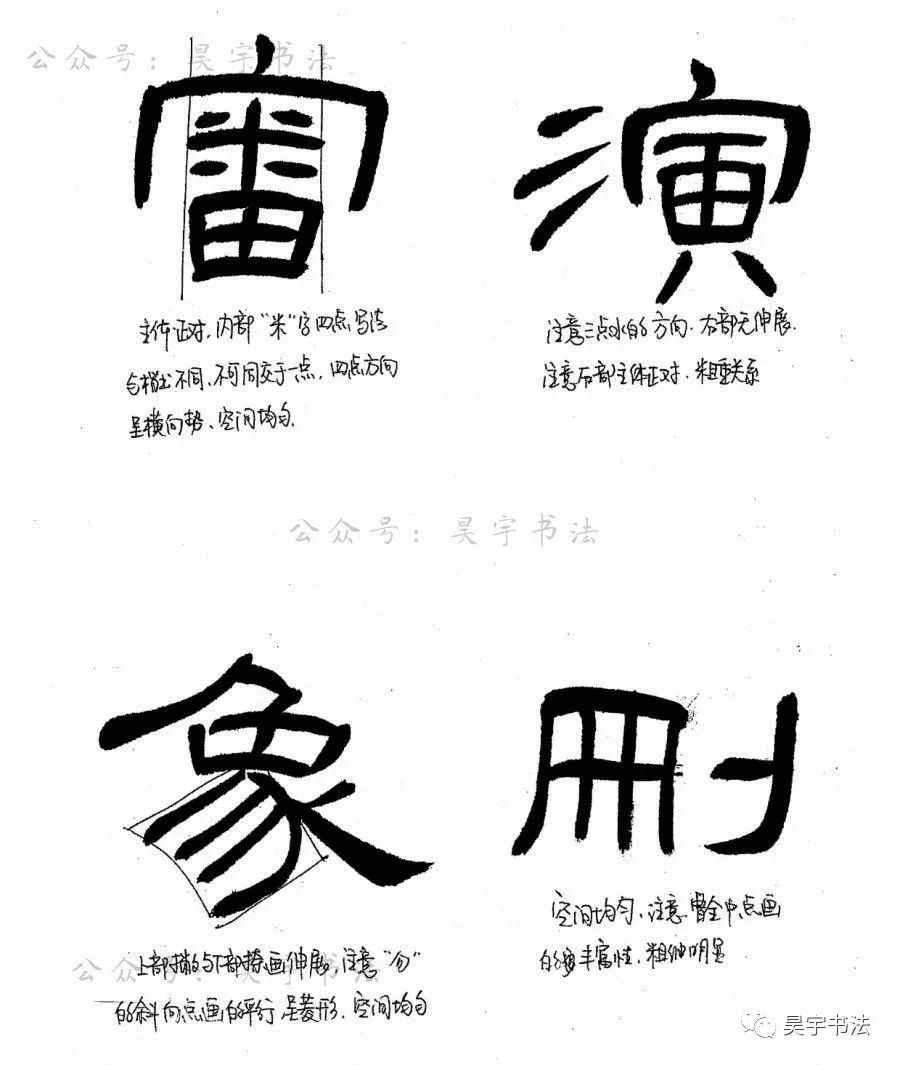 公众号：昊宇书法
審
演
主体正对，内部“米”字四点写法
与楷书不同，不可同交于一点，四点方向
呈横向势、空间均匀．
注意三点水的方向．右部无伸展．
注意右部主体正对，粗细关系
公众号：昊宇书法
象
刪
上部撇的与下部捺画伸展，注意“勿”
的斜向点画的平行，呈菱形．空间均匀
公众号：昊宇书法
空间均匀．注意 中点画
的 丰富性，粗细明显
昊宇书法